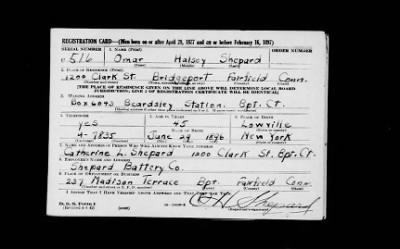 REGISTRATION CARD—(Men born on or after April 28, 1877 and on or before February 16, 1897)
SERIAL NUMBER 1. NAME (Print) ORDER NUMBER
U 516 Omar Halsey Shepard
(First) (Middle) (Last)
2. PLACE OF RESIDENCE (Print)
1200 Clark St. Bridgeport Fairfield Conn.
[THE PLACE OF RESIDENCE GIVEN ON THE LINE ABOVE WILL DETERMINE LOCAL BOARD
JURISDICTION; LINE 2 OF REGISTRATION CERTIFICATE WILL BE IDENTICAL]
3. MAILING ADDRESS
Box 6093 Beardsley Station. Bpt. Ct.
4. TELEPHONE 5. AGE IN YEARS 6. PLACE OF BIRTH
yes 45 Lowville
DATE OF BIRTH
4-7835 June 29 1896 New York
7. NAME AND ADDRESS OF PERSON WHO WILL ALWAYS KNOW YOUR ADDRESS
Catherine L. Shepard 1200 Clark St. Bpt. Ct.
8. EMPLOYER'S NAME AND ADDRESS
Shepard Battery Co.
9. PLACE OF EMPLOYMENT OR BUSINESS
237 Madison Terrace Bpt. Fairfield Conn.
I AFFIRM THAT I HAVE VERIFIED ABOVE ANSWERS AND THAT THEY ARE TRUE.
D. S. S. Form 1
O H Shepard